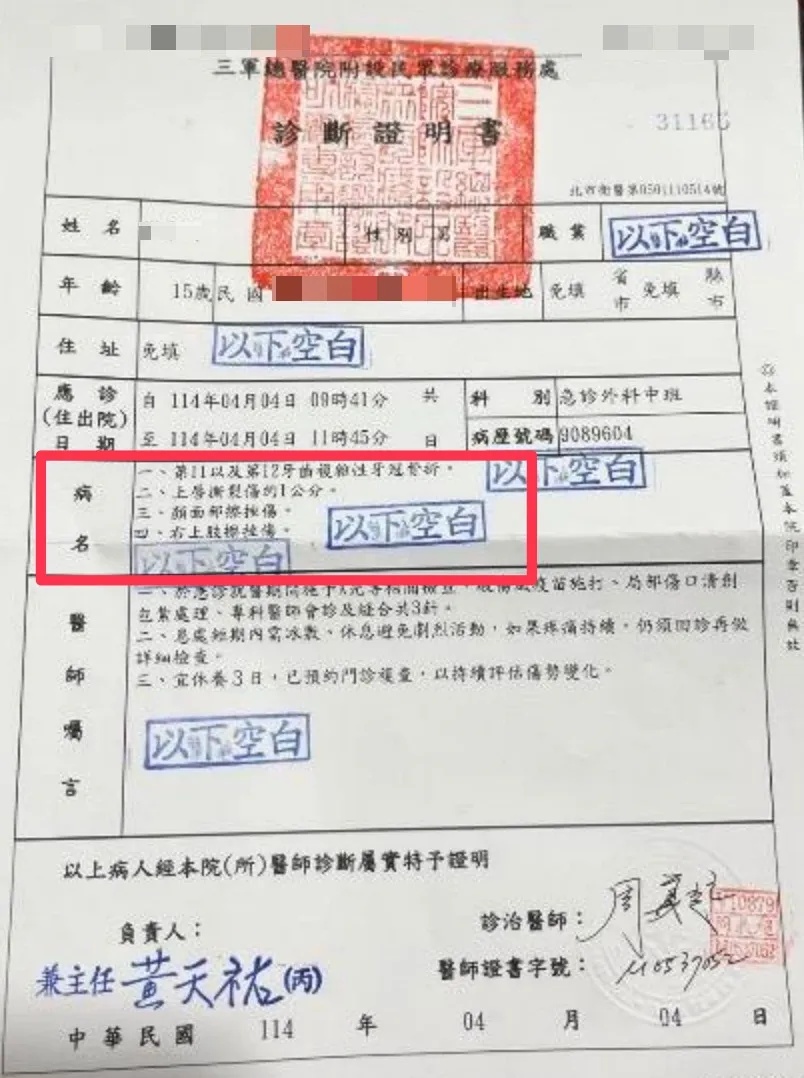 三軍總醫院附設民眾診療服務處
診斷證明書
31166
北市衛醫第0501110514號
姓名
性別 男
職業 以下空白
年齡 15歲 民國
出生地 免填 省市 免填 縣市
住址 免填 以下空白
應診(住出院)日期
自 114年04月04日 09時41分 共
至 114年04月04日 11時45分 日
科別 急診外科中班
病歷號碼 9089604
以下空白
病名
一、第11以及第12牙齒複雜性牙冠骨折。
二、上唇撕裂傷約1公分。
三、顏面部擦挫傷。
四、右上肢擦挫傷。
以下空白
以下空白
醫師囑言
一、於急診就醫期間施予X光等相關檢查、破傷風疫苗施打、局部傷口清創
包紮處理、專科醫師會診及縫合共3針。
二、患處短期內需冰敷、休息避免劇烈活動，如果疼痛持續，仍須回診再做
詳細檢查。
三、宜休養3日，已預約門診複查，以持續評估傷勢變化。
以下空白
◎本證明書須加蓋本院印章否則無效
以上病人經本院(所)醫師診斷屬實特予證明
負責人：
兼主任 黃天祐(丙)
診治醫師：
醫師證書字號：
中華民國 114 年 04 月 04 日